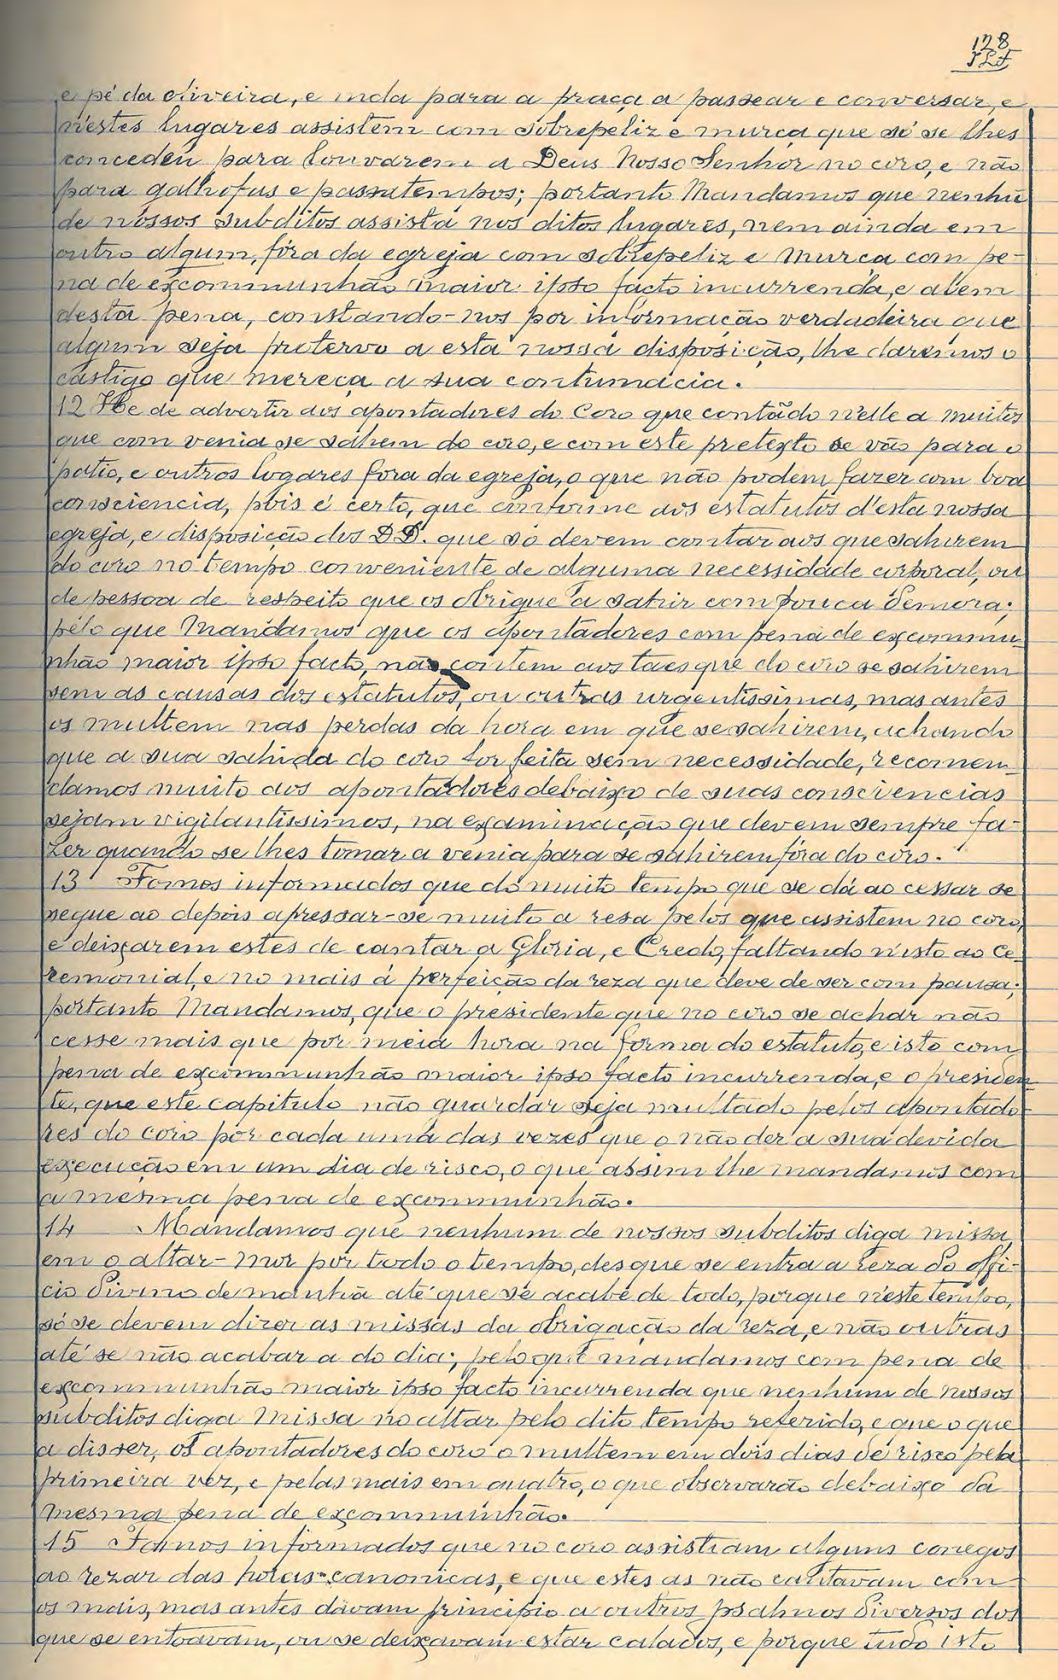 128
e pé da oliveira, e inda para a praça a passear e conversar, e
n'estes lugares assistem com sobrepeliz e murça que só se lhes
concedeu para louvarem a Deus Nosso Senhor no coro, e não
para galhofas e passatempos; portanto Mandamos que nenhũ
de nossos subditos assista nos ditos lugares, nem ainda em
outro algum, fóra da egreja com sobrepeliz e Murca com pe-
na de excommunhão maior ipso facto incurrenda, e alem
desta pena, constando-nos por informação verdadeira que
algum seja protervo a esta nossa disposição, lhe daremos o
castigo que mereça a sua contumacia.
12 He de advertir aos apontadores do Coro que contão n'elle a muitos
que com venia se sahem do coro, e com este pretexto se vão para o
patio, e outros logares fora da egreja, o que não podem fazer com boa
consciencia, pois é certo, que conforme aos estatutos d'esta nossa
egreja, e disposição dos DD. que só devem contar aos que sahirem
do coro no tempo conveniente de alguma necessidade corporal, ou
de pessoa de respeito que os obrigue a sahir com pouca demora;
pelo que Mandamos que os apontadores com pena de excommu-
nhão maior ipso facto, não contem aos taes que do coro se sahirem
sem as causas dos estatutos, ou outras urgentissimas, mas antes
os multem nas perdas da hora em que se sahirem, achando
que a sua sahida do coro for feita sem necessidade, recomen-
damos muito aos apontadores debaixo de suas consciencias
sejam vigilantissimos, na examinação que devem sempre fa-
zer quando se lhes tomar a venia para se sahirem fóra do coro.
13 Fomos informados que do muito tempo que se dá ao cessar se
segue ao depois apressar-se muito a resa pelos que assistem no coro,
e deixarem estes de cantar a Gloria, e Credo, faltando n'isto ao Ce-
remonial, e no mais á perfeição da reza que deve de ser com pausa;
portanto Mandamos, que o presidente que no coro se achar não
cesse mais que por meia hora na forma do estatuto, e isto com
pena de excommunhão maior ipso facto incurrenda, e o presiden
te, que este capitulo não guardar seja multado pelos apontado-
res do coro por cada uma das vezes que o não der a sua devida
execução em um dia de risco, o que assim lhe mandamos com
a mesma pena de excommunhão.
14 Mandamos que nenhum de nossos subditos diga missa
em o altar-mor por todo o tempo, des que se entra a reza do offi-
cio divino de manhã até que se acabe de todo, porque n'este tempo,
só se devem dizer as missas da obrigação da reza, e não outras
até se não acabar a do dia; pelo que mandamos com pena de
excommunhão maior ipso facto incurrenda que nenhum de nossos
subditos diga Missa no altar pelo dito tempo referido, e que o que
a disser, os apontadores do coro o multem em dois dias de risco pela
primeira vez, e pelas mais em quatro, o que observarão debaixo da
mesma pena de excommunhão.
15 Fomos informados que no coro assistiam alguns conegos
ao rezar das horas-canonicas, e que estes as não cantavam com
os mais, mas antes davam principio a outros psalmos diversos dos
que se entoavam, ou se deixavam estar calados, e porque tudo isto